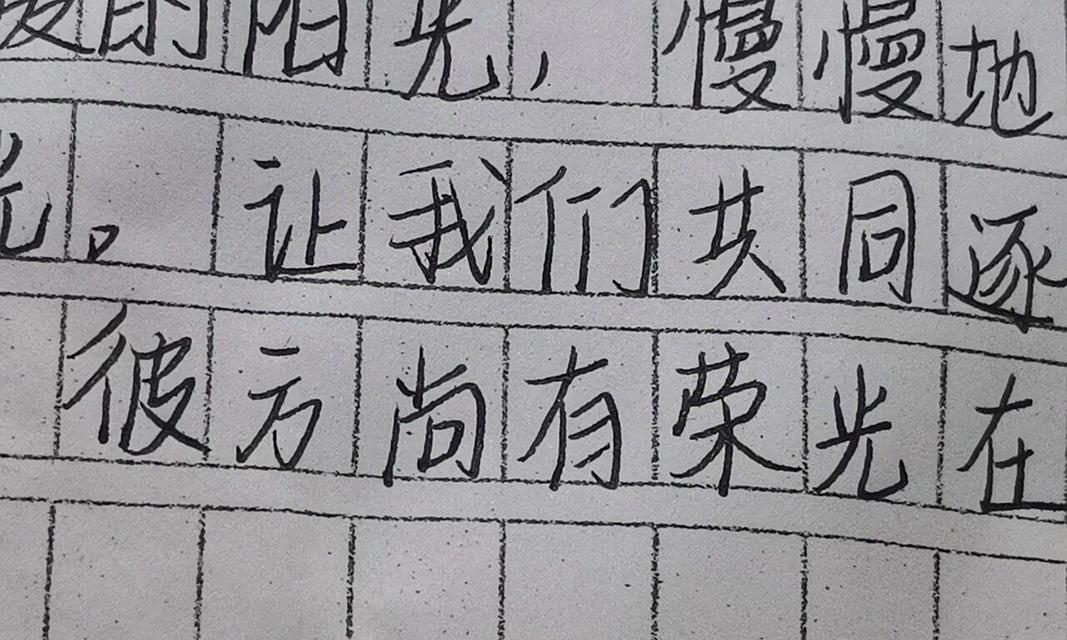 的阳光，慢慢地
光。让我们共同逐
彼方尚有荣光在